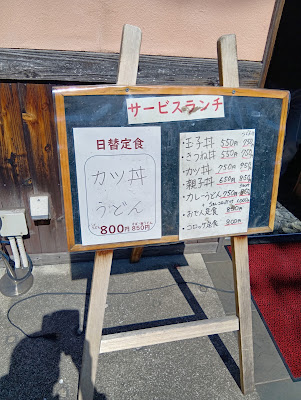 サービスランチ
日替定食
カツ丼
うどん
800円
850円
・玉子丼 550円 750
・きつね丼 550円 750
・カツ丼 750円 950
・親子丼 650円 850
・カレーうどん 750円
・おでん定食
・コロッケ定食